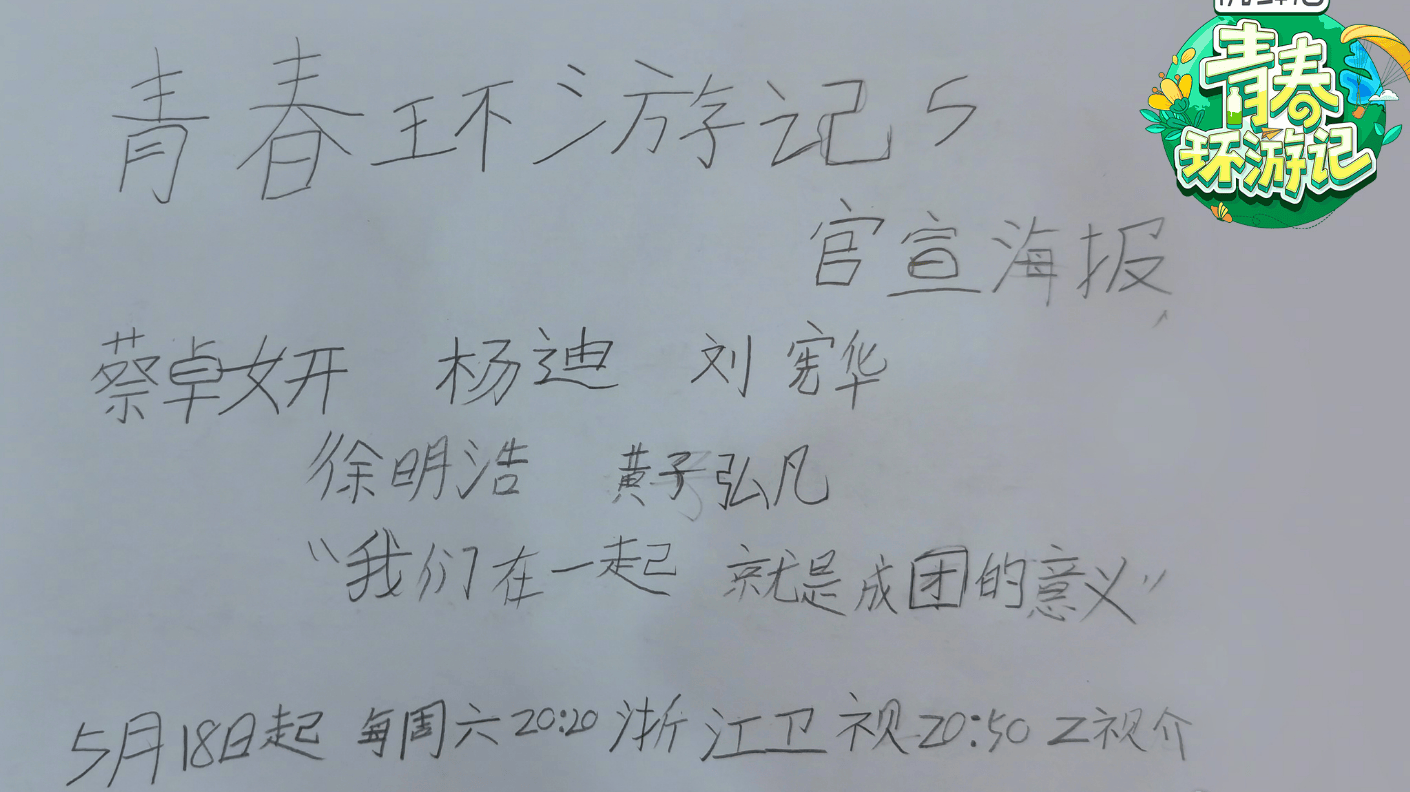 青春环游记5
官宣海报
蔡卓妍 杨迪 刘宪华
徐明浩 黄子弘凡
“我们在一起 就是成团的意义”
5月18日起 每周六20:20浙江卫视20:50Z视介
青春
环游记